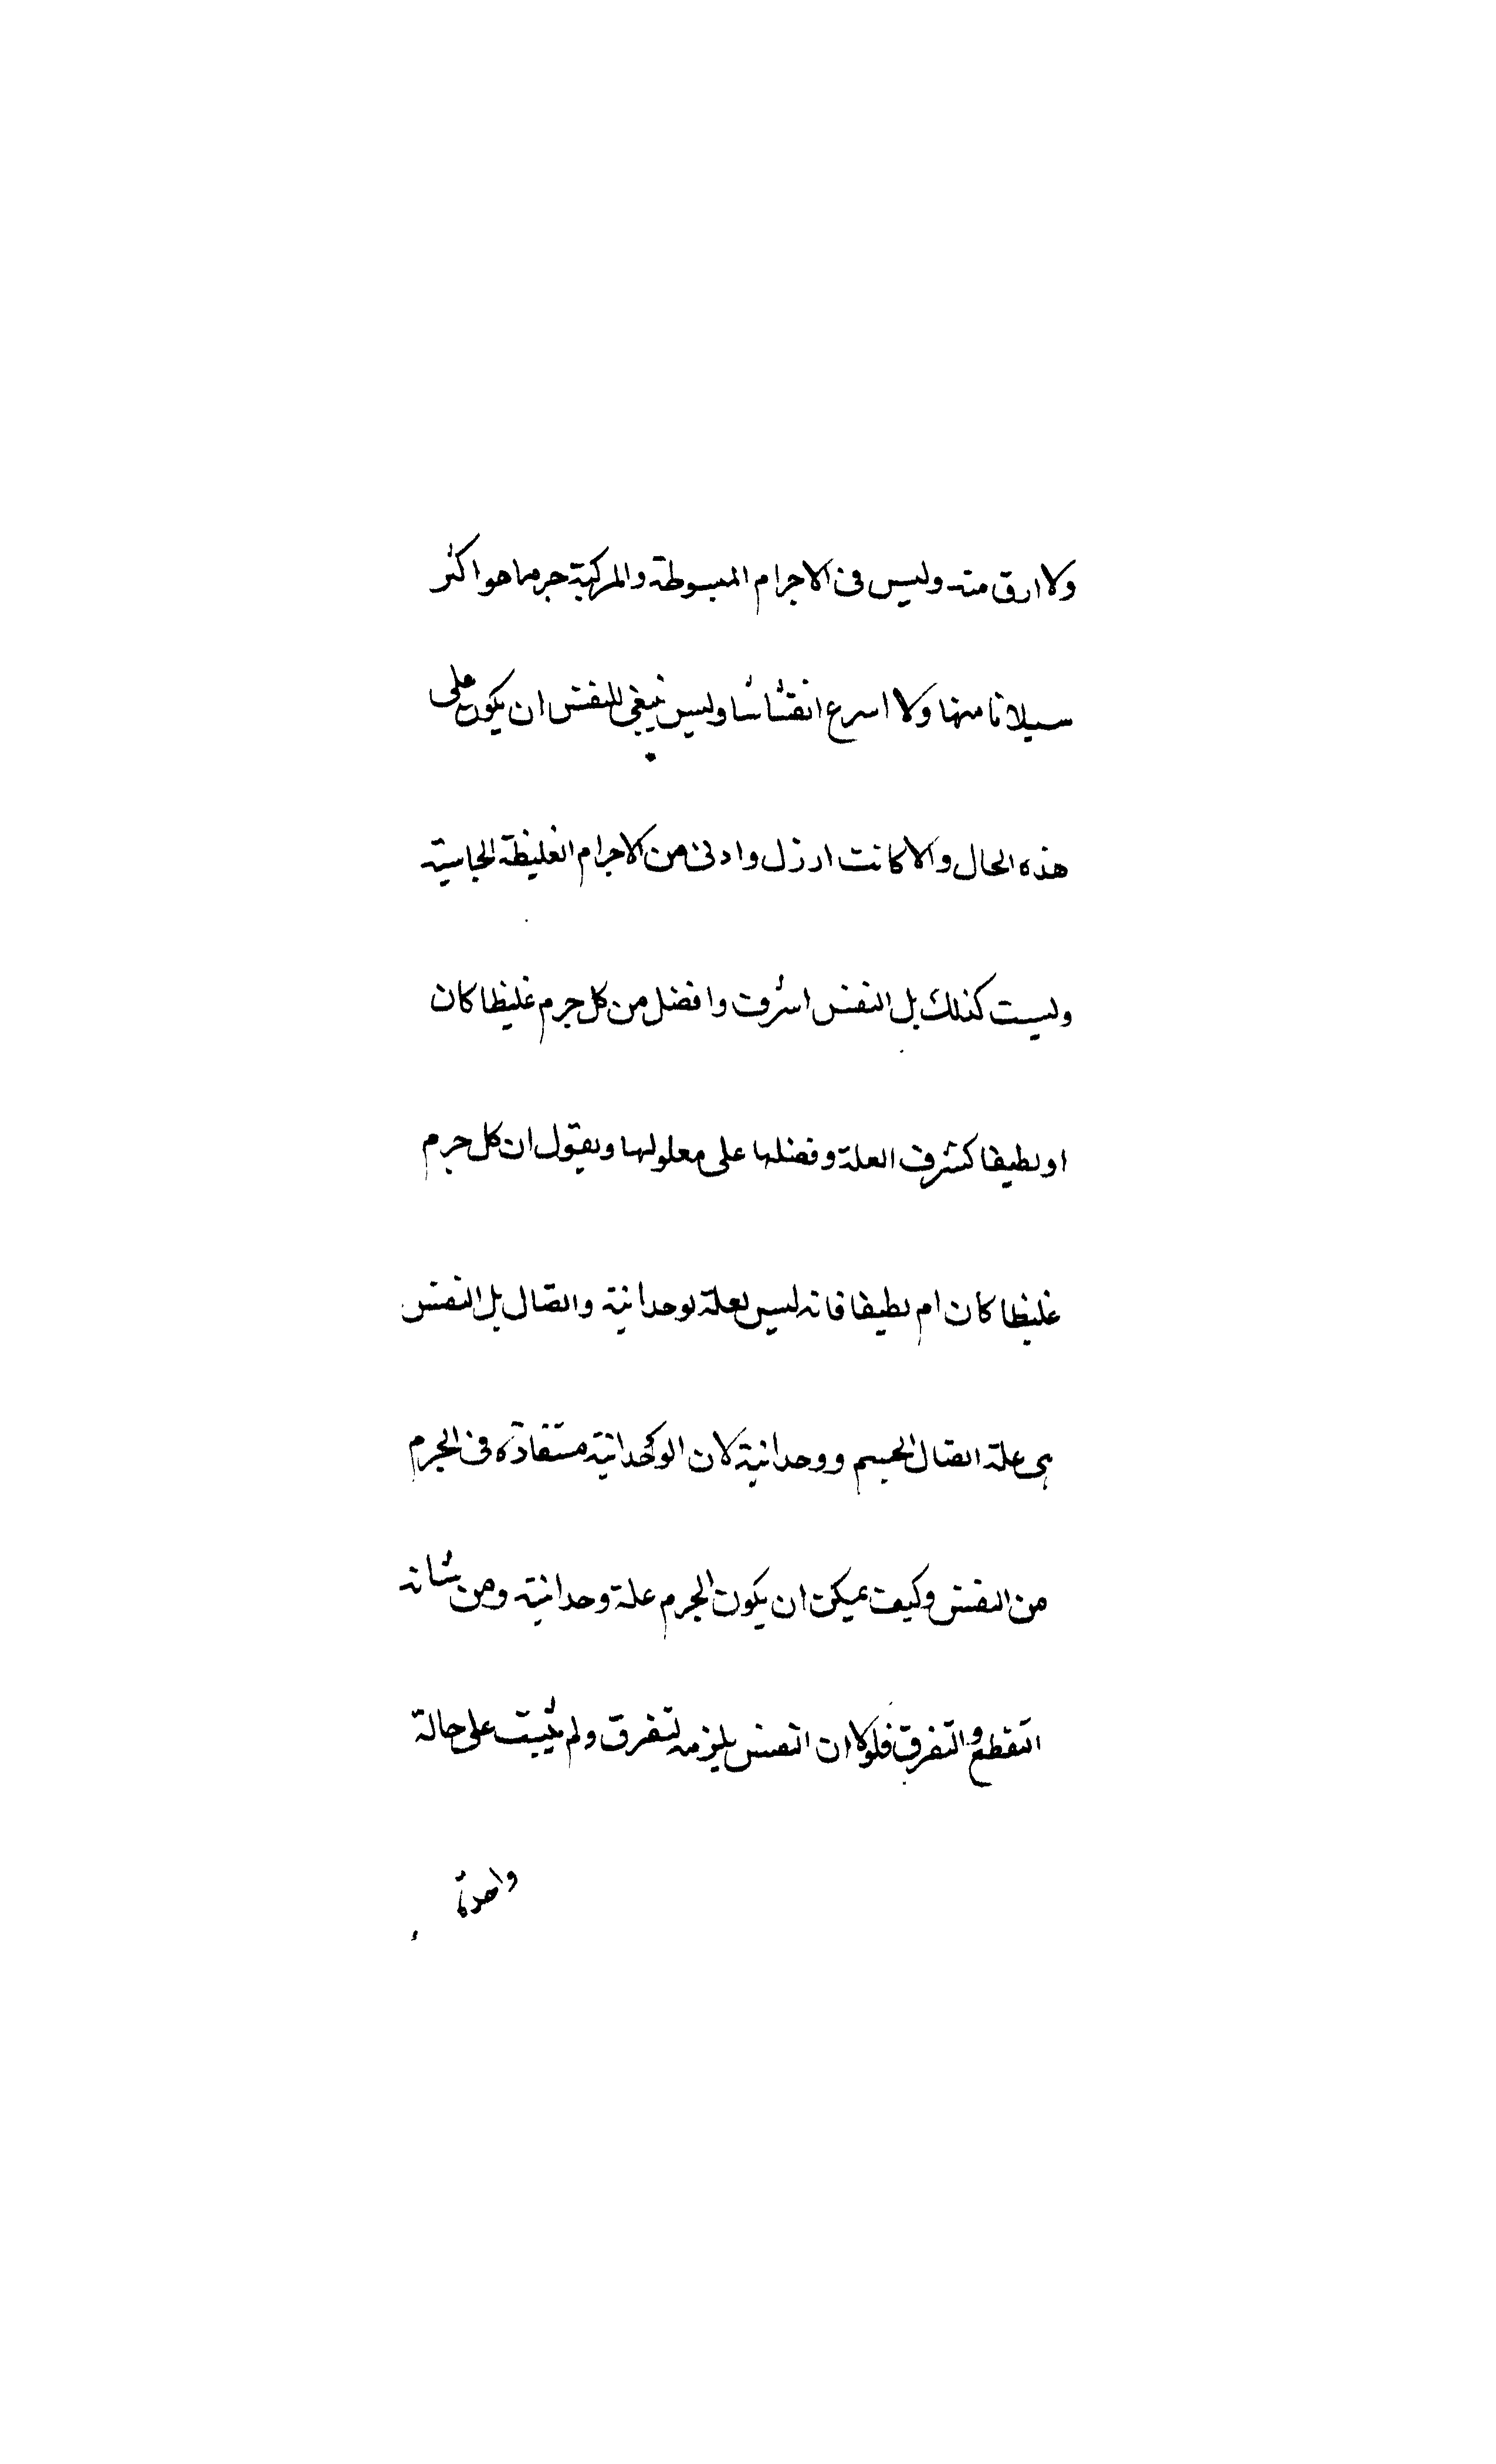 ولا ارق منه وليس فى الاجرام المبسوطة والمركبة جرم ما هو اكثر
سيلانا منها ولا اسرع انفشاشا وليس ينبغى للنفس ان يكون على
هذه الحال والا كانت ارذل وادنى من الاجرام الغليظة الجاسية
وليست كذلك بل النفس اشرف وافضل من كل جرم غليظا كان
او لطيفا كشرف العلة وفضلها على معلولها ويقول ان كل جرم
غليظا كان ام لطيفا فانه ليس لعلة لوحدانية واتصال بل النفس
هى علة اتصال الجسم ووحدانية لان الوحدانية مستفادة فى الجرم
من النفس وكيف يمكن ان يكون الجرم علة وحدانية ومن شانه
التقطع والتفرق فلولا ان النفس يلزمه لتفرق ولم يثبت على حالة
واحدة